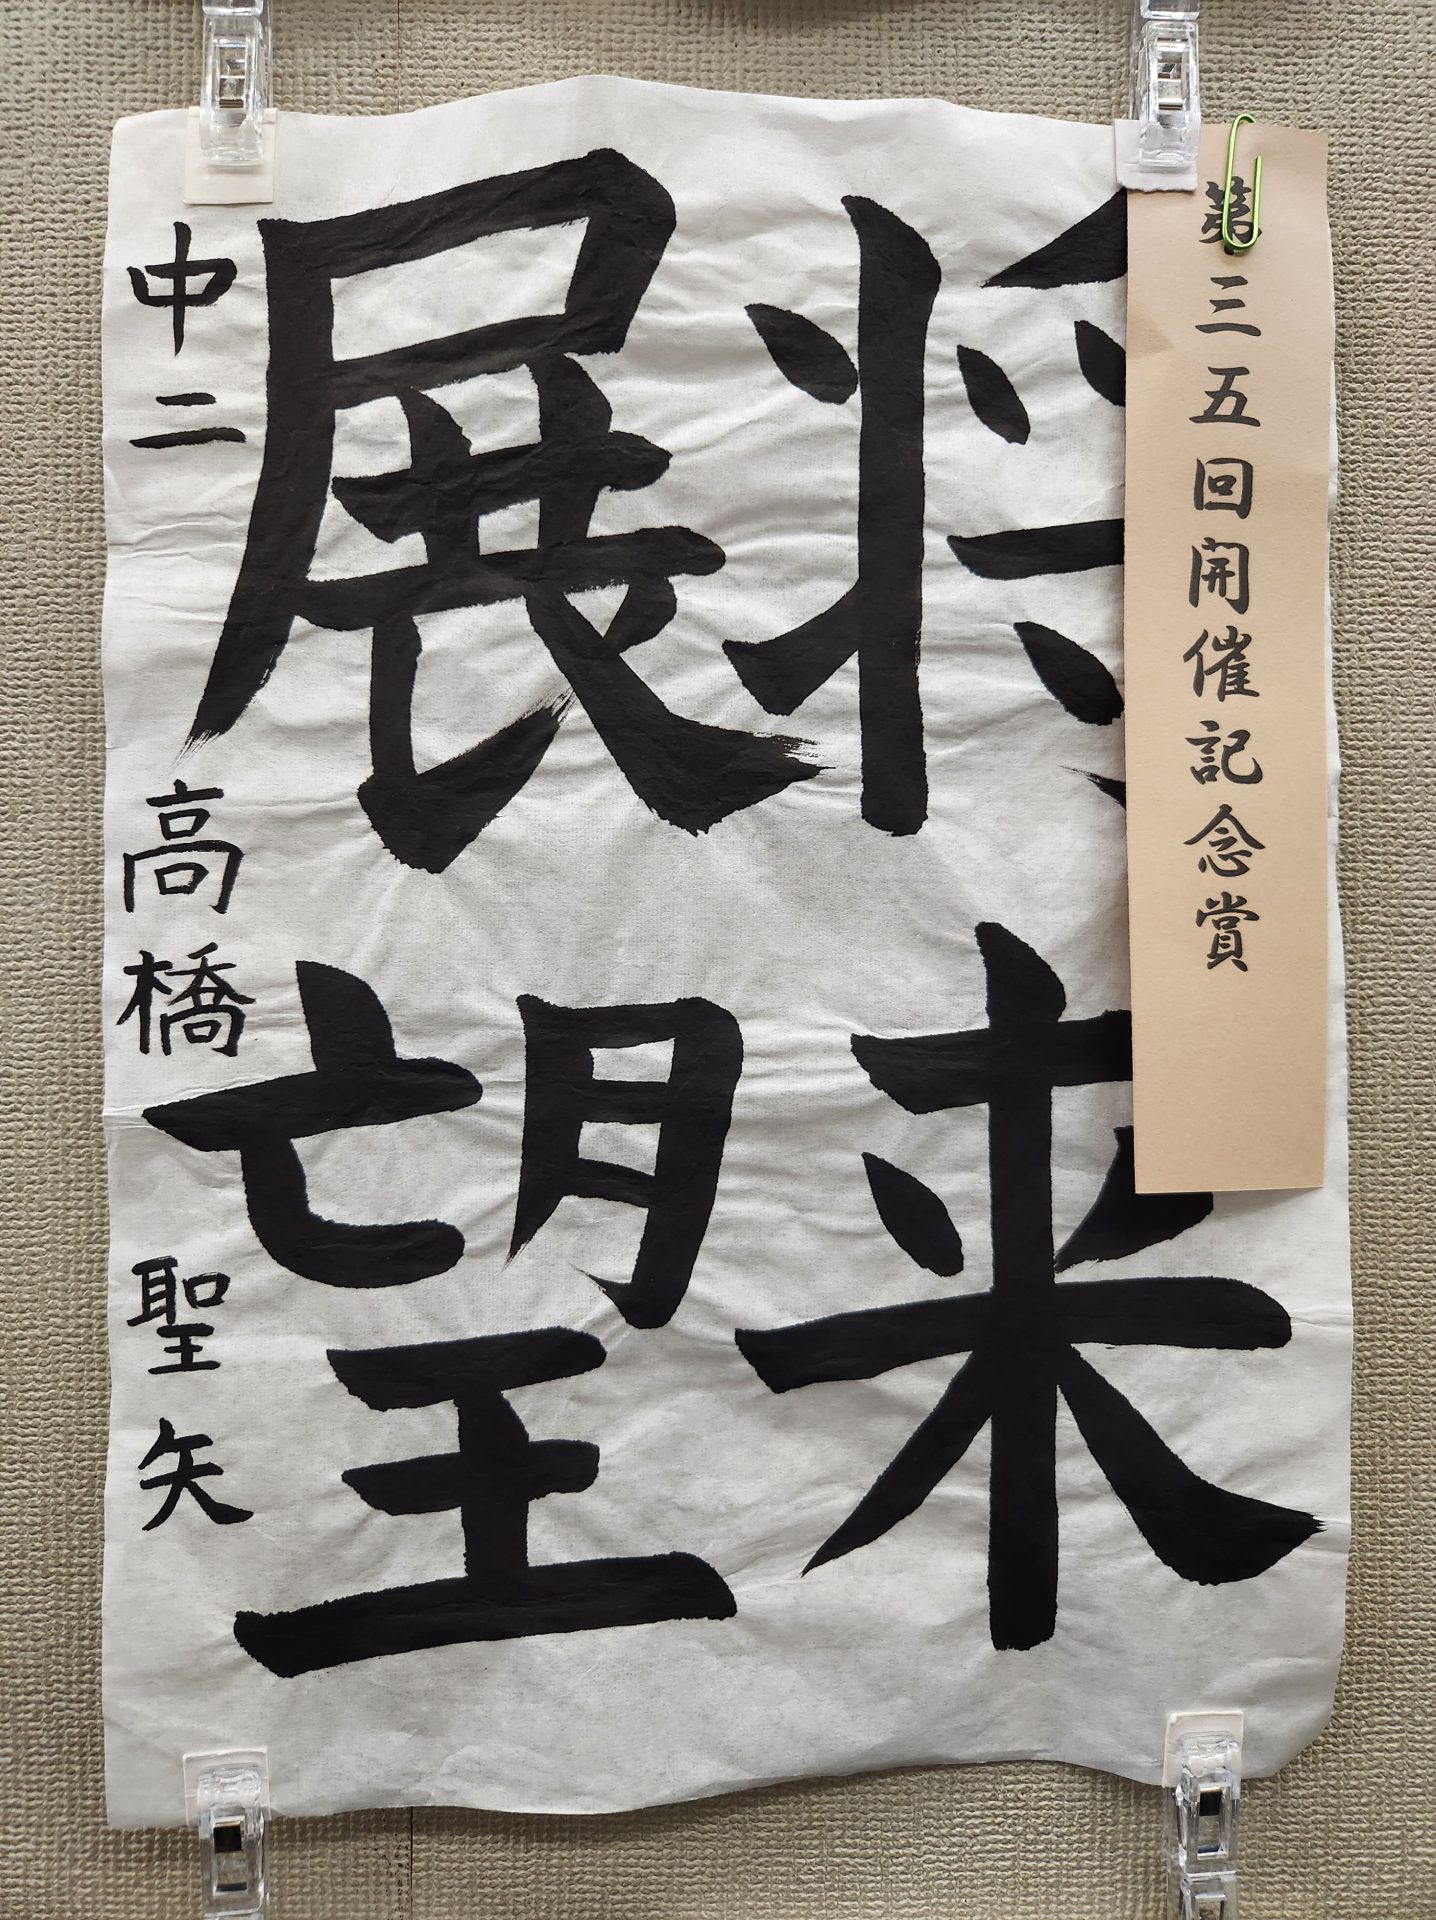 第三五回開催記念賞
将来
展望
中二 高橋 聖矢